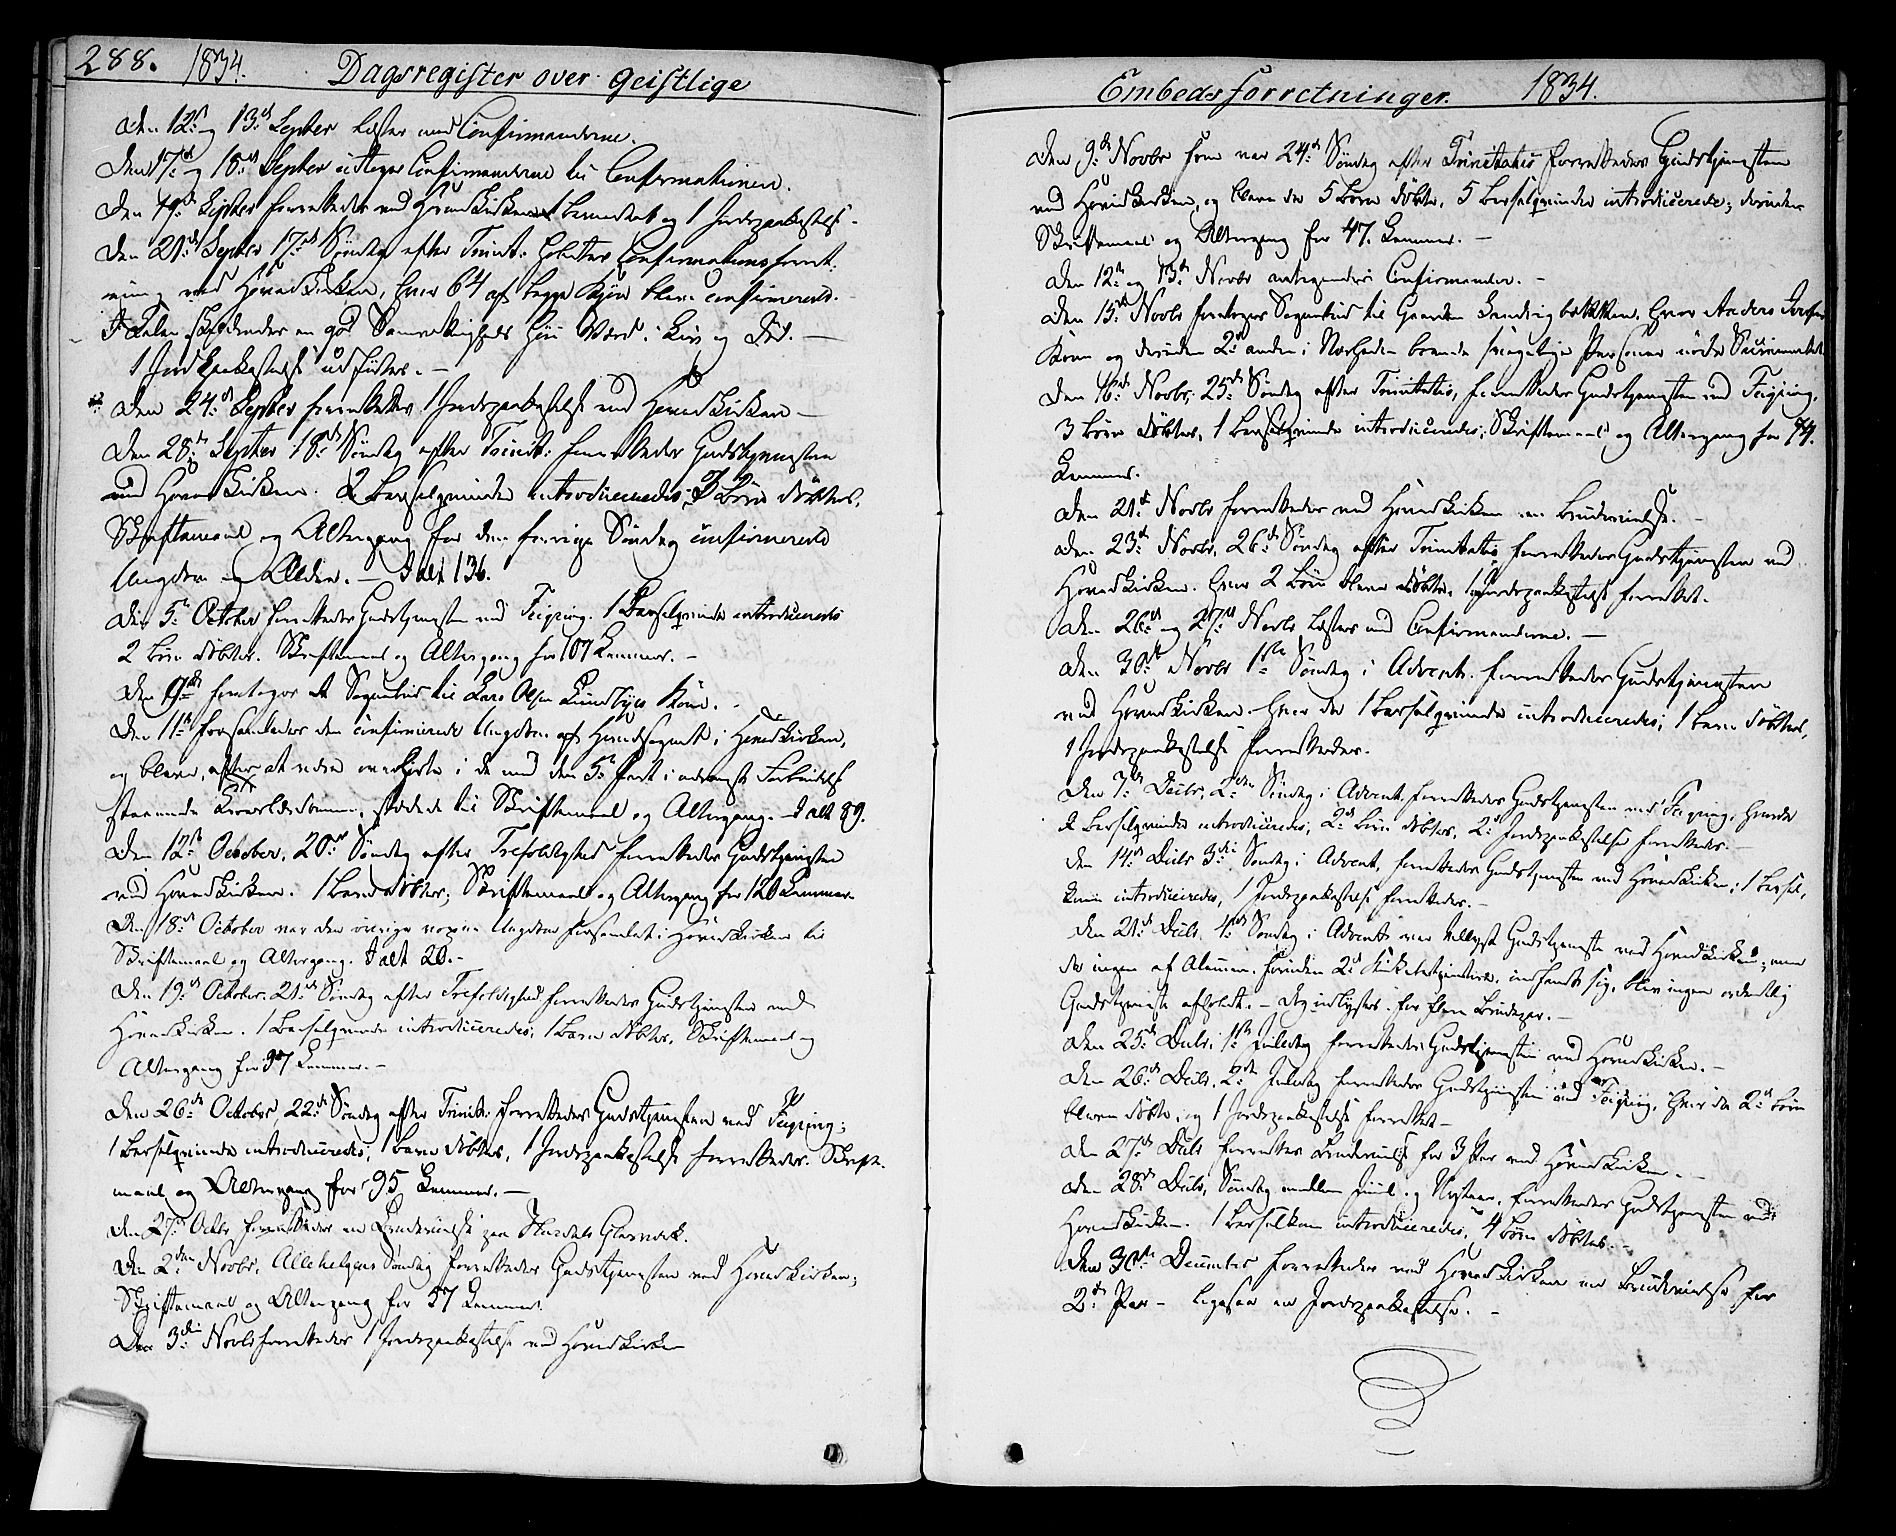 288. 1834. Dagsregister over geistlige
Den 12te og 13de Septbr læstes med Confirmanderne.
Den 17de og 18de Septbr Confirmanderne til Confirmationen.
Den 19de Septbr forrettedes ved Hovedkirken 1 barnedaab og 1 Jordpaakastelse.
Den 21de Septbr 17de Søndag efter Trinit: holdtes Confirmationsforret-
ning ved Hovedkirken, hvor 64 af begge Kjøn bleve confirmerede.
I Talen skildredes en god Samvittigheds høie Værd i Liv og Død. —
1 Jordpaakastelse udførtes. —
Den 24de Septbr forrettedes 1 Jordpaakastelse ved Hovedkirken —
Den 28de Septbr 18de Søndag efter Trinit: forrettedes Gudstjenesten
ved Hovedkirken. 2 Barselqvinder introduceredes; 3 Børn døbtes.
Skriftemaal og Altergang for den forrige Søndag confirmerede
Ungdom og Ældre. — I alt 136.
Den 5te October forrettedes Gudstjenesten ved Feiring. 1 Barselqvinde introduceredes
2 Børn døbtes. Skriftemaal og Altergang for 107 Lemmer. —
Den 9de foretoges et Sognebud til Lars Olsen Lundbyes Kone. —
Den 11te forsamledes den confirmerede Ungdom af Hovedsognet i Hovedkirken,
og bleve, efter at være i de med den 5te Part i Forbindelse
staaende Troeslærdomme, stedede til Skriftemaal og Altergang. — I alt 89.
Den 12te October, 20de Søndag efter Trefoldighed forrettedes Gudstjenesten
ved Hovedkirken. 1 Barn døbtes; Skriftemaal og Altergang for 120 Lemmer.
Den 18de October var den øvrige voxne Ungdom forsamlet i Hovedkirken til
Skriftemaal og Altergang. I alt 20. —
Den 19de October. 21de Søndag efter Trefoldighed forrettedes Gudstjenesten ved
Hovedkirken. 1 Barselqvinde introduceredes; 1 Barn døbtes, Skriftemaal og
Altergang for 97 Lemmer. —
Den 26de October, 22de Søndag efter Trinit: forrettedes Gudstjenesten ved Feiring;
1 Barselqvinde introduceredes, 1 Barn døbtes, 1 Jordpaakastelse forrettedes. Skrifte-
maal og Altergang for 95 Lemmer. —
Den 27de Octbr forrettedes en Brudevielse paa Hurdals Glasværk.
Den 2den Novbr, Allehelgens Søndag forrettedes Gudstjenesten ved Hovedkirken;
Skriftemaal og Altergang for 57 Lemmer.
Den 3die Novbr forrettedes 1 Jordpaakastelse ved Hovedkirken
Embedsforretninger. 1834.
Den 9de Novbr som var 24de Søndag efter Trinitatis forrettedes Gudstjenesten
ved Hovedkirken, og bleve der 5 Børn døbte, 5 Barselqvinder introducerede; desuden
Skriftemaal og Altergang for 47. Lemmer. —
Den 12te og 13de Novbr Confirmander. —
Den 15de Novbr foretoges Sognebud til Gaarden Sandvigbakken, hvor Anders
Kone og desuden 2de andre i Nærheden boende svagelige Personer nøde Sacramentet
Den 16de Novbr. 25de Søndag efter Trinitatis, forrettedes Gudstjenesten ved Feiring,
3 Børn døbtes, 1 Barselqvinde introduceredes, Skriftemaal og Altergang for 74.
Lemmer.
Den 21de Novbr forrettedes ved Hovedkirken en Brudevielse. —
Den 23de Novbr, 26de Søndag efter Trinitatis forrettedes Gudstjenesten ved
Hovedkirken. Hvor 2 Børn bleve døbte, 1 Jordpaakastelse forrettet.
Den 26de og 27de Novbr læstes med Confirmanderne. —
Den 30te Novbr 1ste Søndag i Advent. forrettedes Gudstjenesten
ved Hovedkirken. Hvor der 1 Barselqvinde introduceredes; 1 Barn døbtes,
1 Jordpaakastelse forrettedes.
Den 7de Decbr, 2den Søndag i Advent. forrettedes Gudstjenesten ved Feiring, hvorda
2 Barselqvinder introduceredes; 2de Børn døbtes, 2de Jordpaakastelser forrettedes. —
Den 14de Decbr 3die Søndag i Advent, forrettedes Gudstjenesten ved Hovedkirken; 1 Barsel-
kone introduceredes, 1 Jordpaakastelse forrettedes. —
Den 21de Decbr, 4de Søndag i Advent var Gudstjeneste ved Hovedkirken; men
da ingen af Almuen, foruden 2de indfandt sig, blev ingen ordentlig
Gudstjeneste afholdt. — Dog indlystes for flere Brudepar. —
Den 25de Decbr, 1ste Juledag forrettedes Gudstjenesten ved Hovedkirken. —
Den 26de Decbr. 2den Juledag forrettedes Gudstjenesten ved Feiring, hvor der 2de Børn
bleve døbte, og 1 Jordpaakastelse forrettet —
Den 27de Decbr forrettes Brudevielse for 3 Par ved Hovedkirken. —
Den 28de Decbr, Søndag mellem Juul og Nytaar, forrettedes Gudstjenesten ved
Hovedkirken. 1 Barselkone introduceredes, 4 Børn døbtes. —
Den 30te December forrettedes ved Hovedkirken en Brudevielse for
2de Par — ligesaa en Jordpaakastelse. —